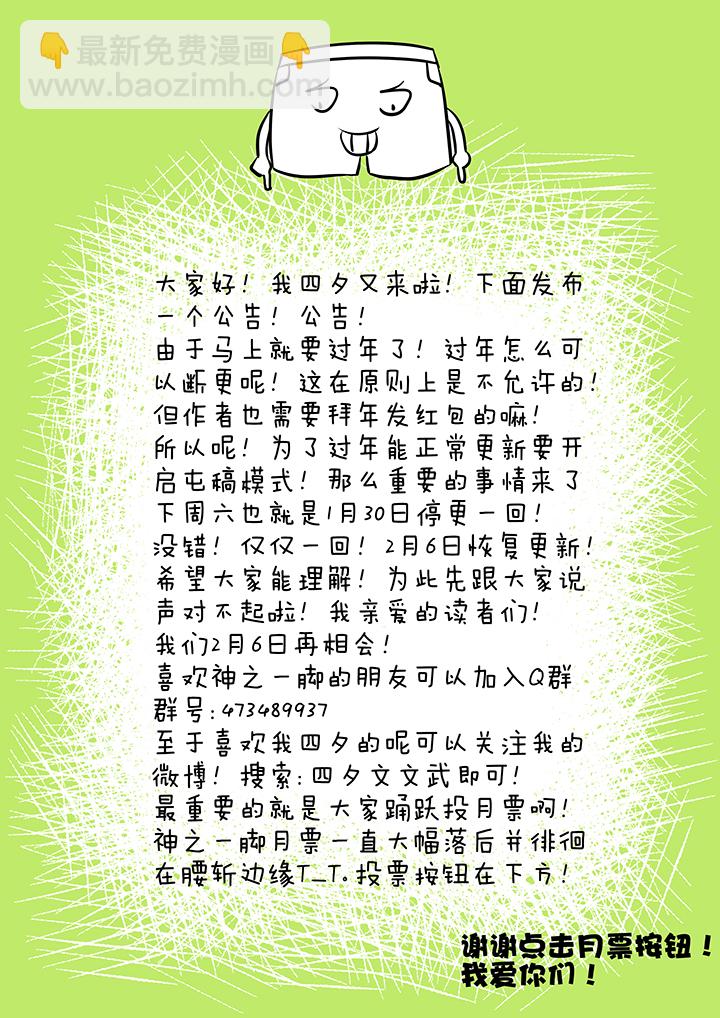 👇最新免费漫画👇
www.baozimh.com
大家好！我四夕又来啦！下面发布
一个公告！公告！
由于马上就要过年了！过年怎么可
以断更呢！这在原则上是不允许的！
但作者也需要拜年发红包的嘛！
所以呢！为了过年能正常更新要开
启屯稿模式！那么重要的事情来了
下周六也就是1月30日停更一回！
没错！仅仅一回！2月6日恢复更新！
希望大家能理解！为此先跟大家说
声对不起啦！我亲爱的读者们！
我们2月6日再相会！
喜欢神之一脚的朋友可以加入Q群
群号：473489937
至于喜欢我四夕的呢可以关注我的
微博！搜索：四夕文文武即可！
最重要的就是大家踊跃投月票啊！
神之一脚月票一直大幅落后并徘徊
在腰斩边缘T_T。投票按钮在下方！
谢谢点击月票按钮！
我爱你们！